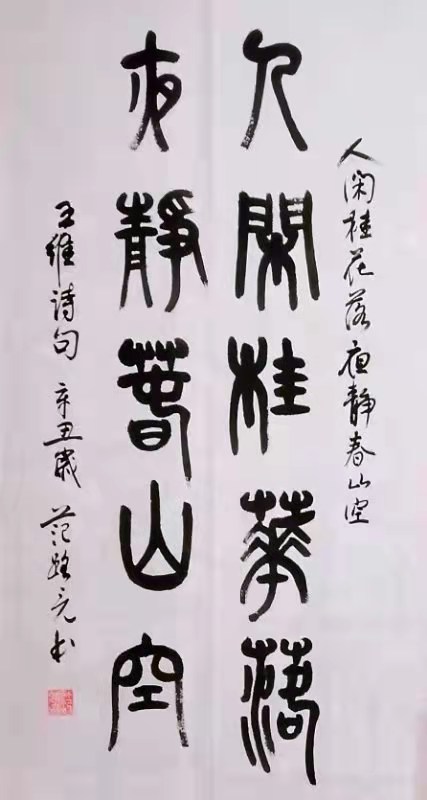 人闲桂花落夜静春山空
人閑桂華落
夜靜萅山空
王維诗句 辛丑歲 范 书